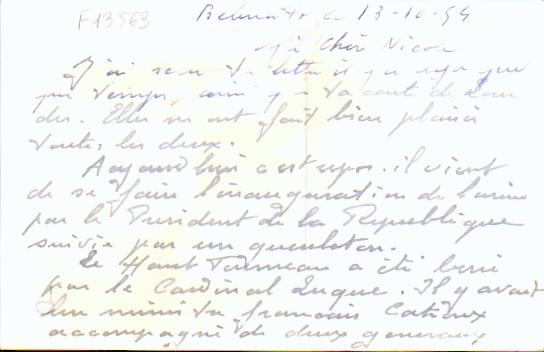 F13563
le 13-10-54
Cher Nicou
J'ai reçu ta lettre il y a
que temps, ainsi que ta carte de Lour
des. Elles m'ont fait bien plaisir
toutes les deux.
Aujourd'hui c'est repos. il vient
de se faire l'inauguration de l'usine
par le President de la Republique
suivie par un gueuleton.
Le Haut Fourneau a été béni
par le Cardinal Luque. Il y avait
un ministre français Catroux
accompagné de deux generaux